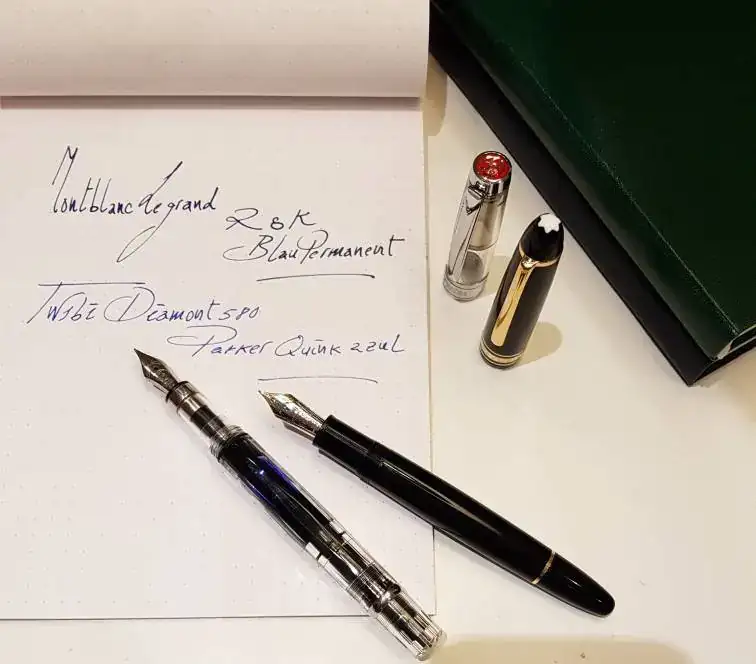 Montblanc Legrand
R&K
Blau Permanent
Twsbi Diamont 580
Parker Quink azul